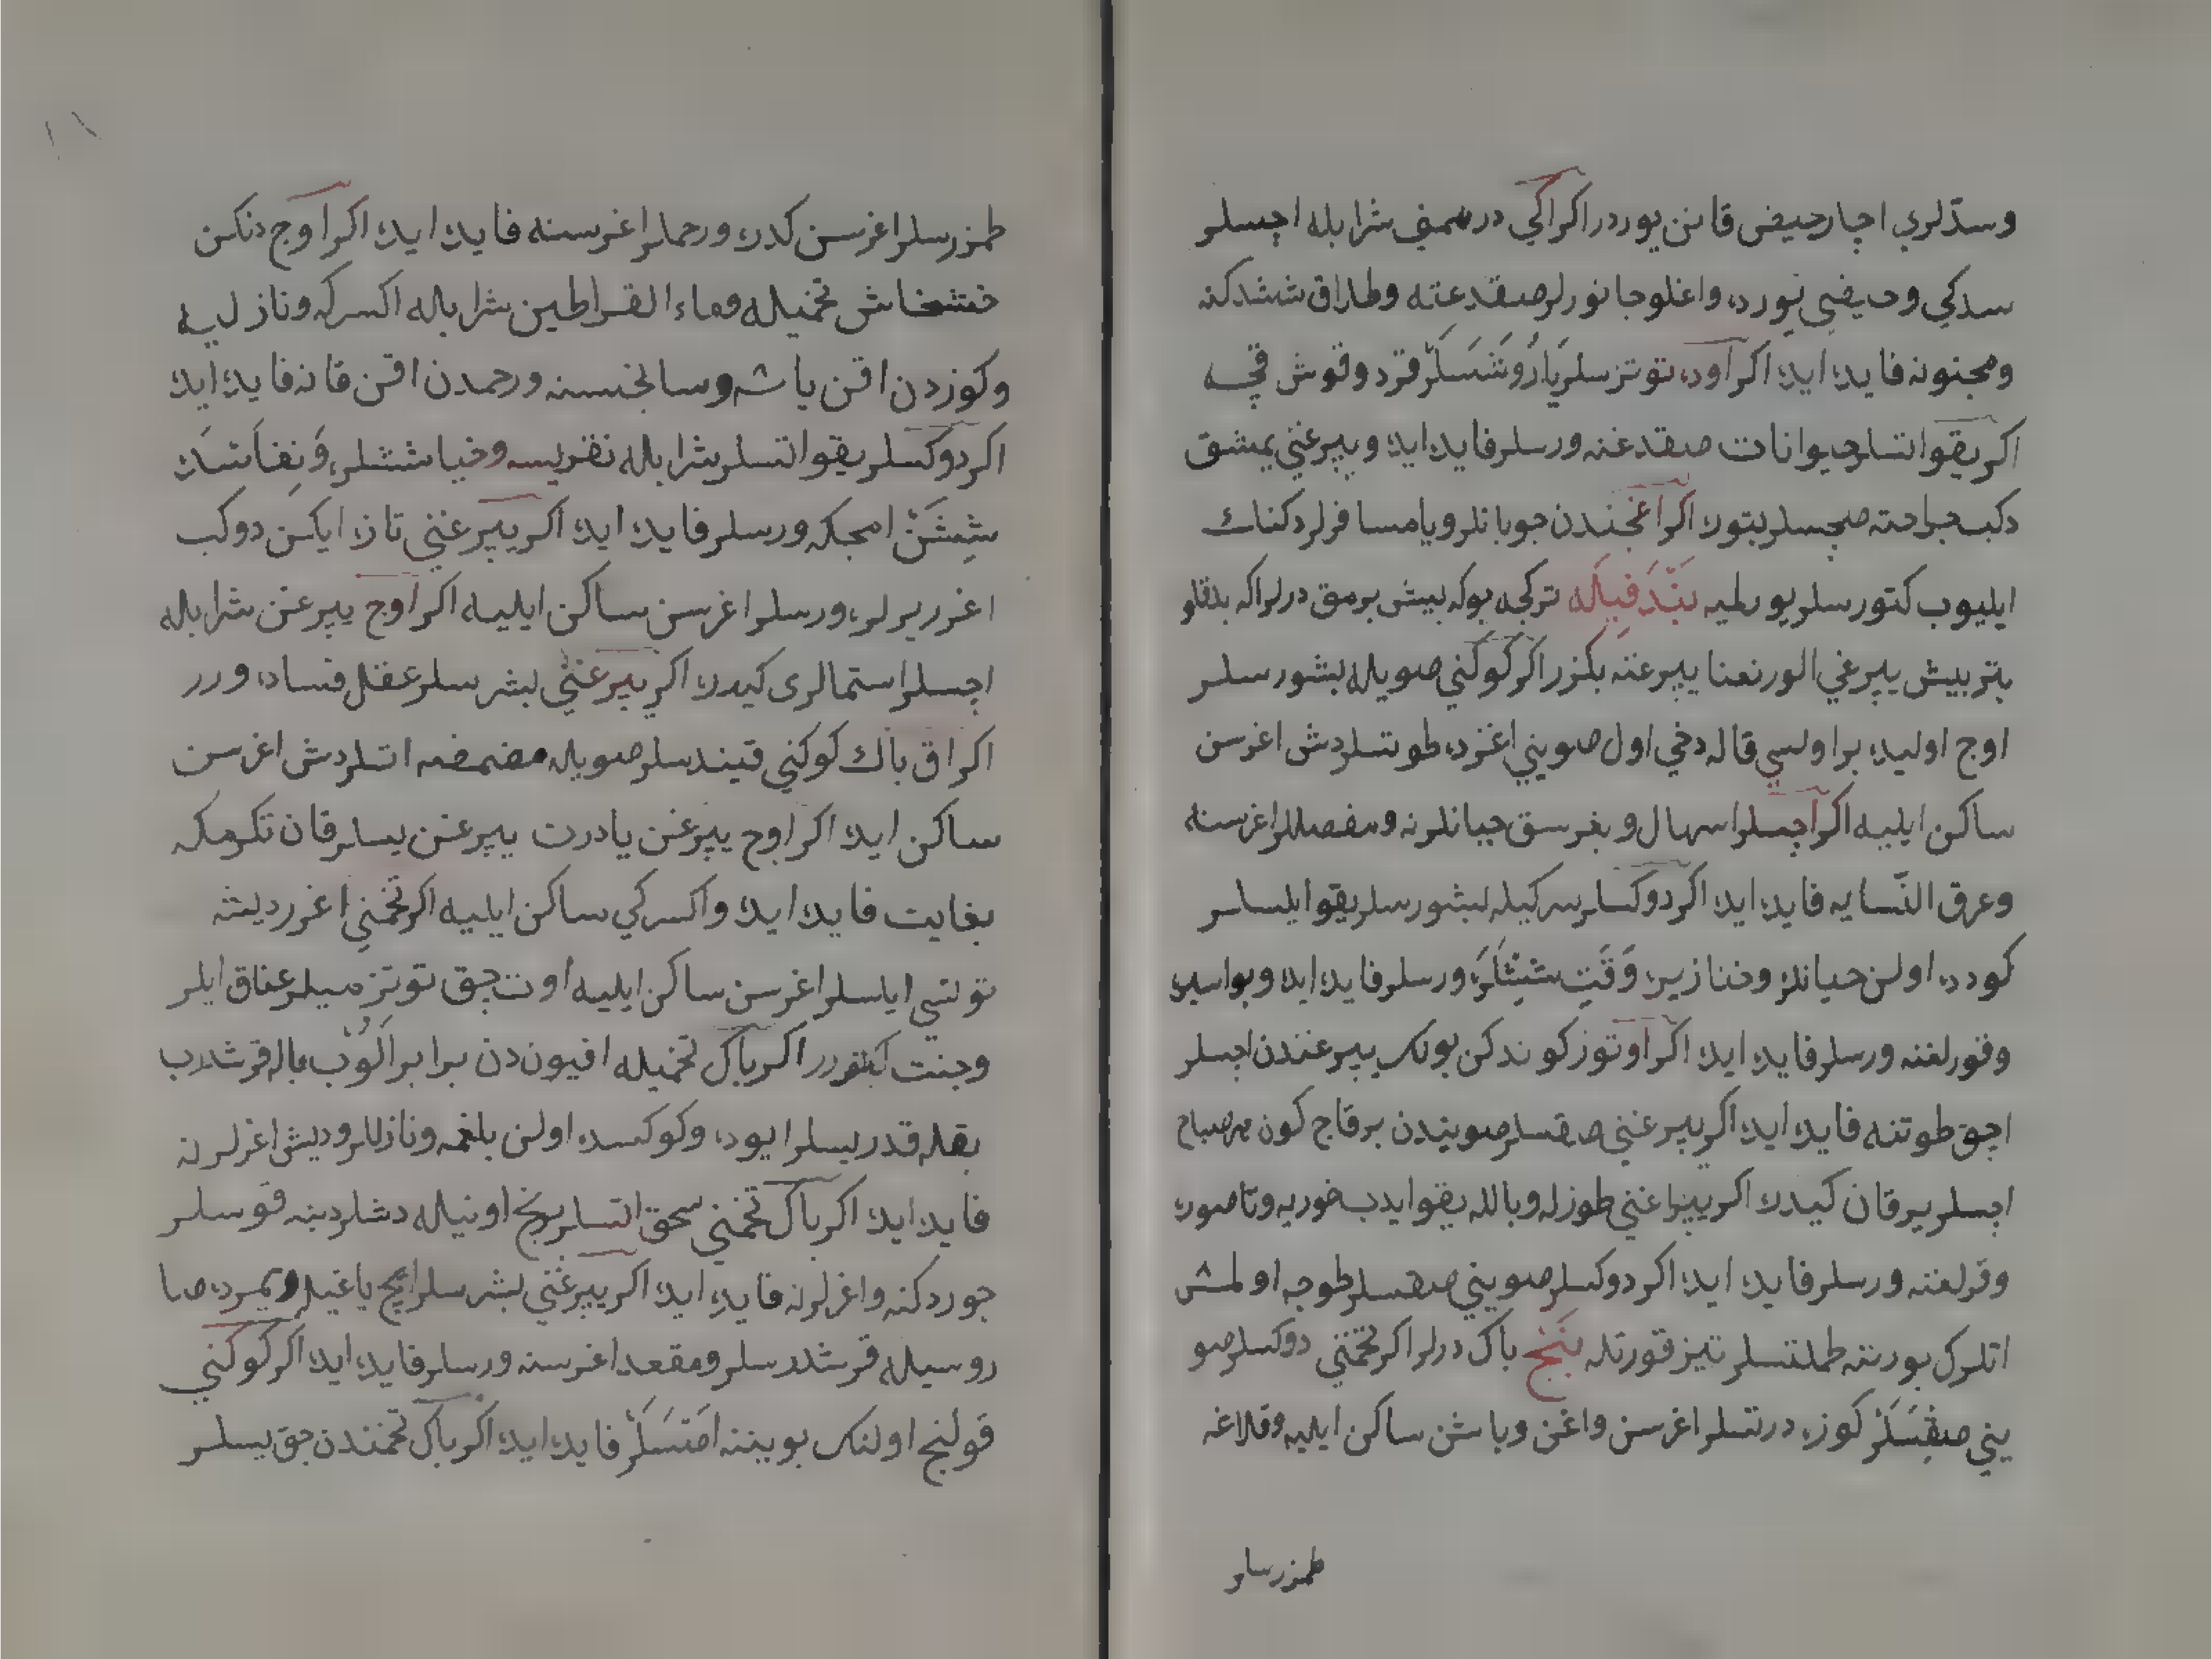 وسدّلري اچار حيض قانن يوردر اكر ايكي درهمنی شرابله اچسلر
سدكي وحيضی يورده واغلو جانورلر صقدغنه وطلاق ششدكنه
ومجنونه فايده ايده اكر اوده توتزسلر يارو شسلر قرد وقوش قچه
اكر يقو اتسلر حيوانات صقدغنه ورسلر فايده ايده و يپرغنی يمشق
دكب جراحته صچسلر بتوره اكر اغجندن جوبانلر ويا مسافرلر دكنك
ايليوب كتورسلر يورلميه بَنْدَفِيلَه تركجه بوكه بيش برمق درلر اكه بدقلو
بتر بيش يپرغی الور نعنا يپرغنه بكزر اكر كوكنی صويله بشورسلر
اوج اوليده بر اولسی قاله دخی اول صوينی اغزده طوتسلر دش اغرسن
ساكن ايليه اكر اچسلر اسهال و بغرسق جبانلرنه ومفصللر اغرسنه
وعرق النّسايه فايده ايده اكر دوكسلر سركيله بشورسلر يقو ايلسلر
كوده ده اولن حبانلره وخنازيره وَقَتِ شِشْلَرَه ورسلر فايده ايده وبواسيره
وقورلغنه ورسلر فايده ايده اكر اوتوز كوندكن بونك يپرغندن اچسلر
اچق طوتنه فايده ايده اكر يپرغنی صقسلر صويندن برقاج كون هر صباح
اچسلر يرقان كيدره اكر يپراغنی طوزله وبالله يقو ايدب خوريه وناصوره
وقرلغنه ورسلر فايده ايده اكر دوكسلر صوينی صقسلر طوجه اولمش
اتلرك بورننه طملتسلر تيز قورتله بَنْج باك درلر اكر تخمنی دوكسلر صو
ينی صِقْسَلَرْ كوزه درتسلر اغرسن واغن وباشن ساكن ايليه وقلاغه
طمزرسلر
طمزرسلر اغرسن كدره ورحملر اغرسنه فايده ايده اكر اوج دنكن
خشخاش تخميله وماء القراطين شرابله اكسركه ونازليه
وكوزدن اقن ياشه وسالخسنه ورحمدن اقن قانه فايده ايده
اكر دوكسلر يقو اتسلر شرابله نقريسه وخيا ششلره وَنِفَاسْدَه
شِشَنْ امجكه ورسلر فايده ايده اكر يپرغنی تازه ايكن دوكب
اغرر يرلره ورسلر اغرسن ساكن ايليه اكر اوج يپرغن شرابله
اچسلر استمالری كيدره اكر يپرغنی بشرسلر عقل فساده ورر
اكر اق باك كوكنی قيندسلر صويله مضمضه اتسلر دش اغرسن
ساكن ايده اكر اوج يپرغن يا درت يپرغن يسلر قان تكرمكه
بغايت فايده ايده واكسركی ساكن ايليه اكر تخمنی اغرر ديشه
توتسی ايلسلر اغرسن ساكن ايليه اوت چق توتزميلر عناق ايلر
وجنت كتورر اكر باك تخميله افيوندن برابر الُوب باله قرشدرب
بقله قدر يسلر ايوده وكوكسده اولن بلغمه ونازللر وديش اغرلرنه
فايده ايده اكر باك تخمنی سحق اتسلر برنج اونيله دشلر دبنه قوسلر
جوردكنه واغرلرنه فايده ايده اكر يپرغنی بشرسلر ايچ ياغيله ويمرده صا
روسيله قرشدرسلر ومقعد اغرسنه ورسلر فايده ايده اكر كوكنی
قولنج اولنك بويننه اَصَتسَلَرْ فايده ايده اكر باك تخمندن چق يسلر